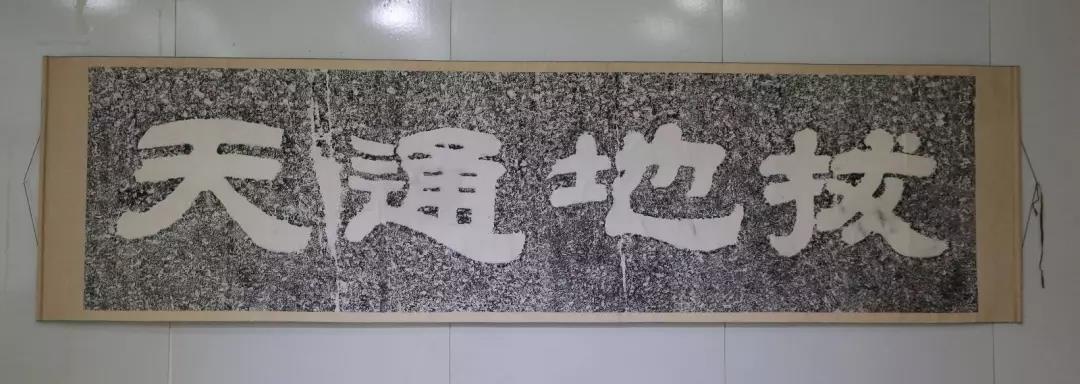 拔地通天